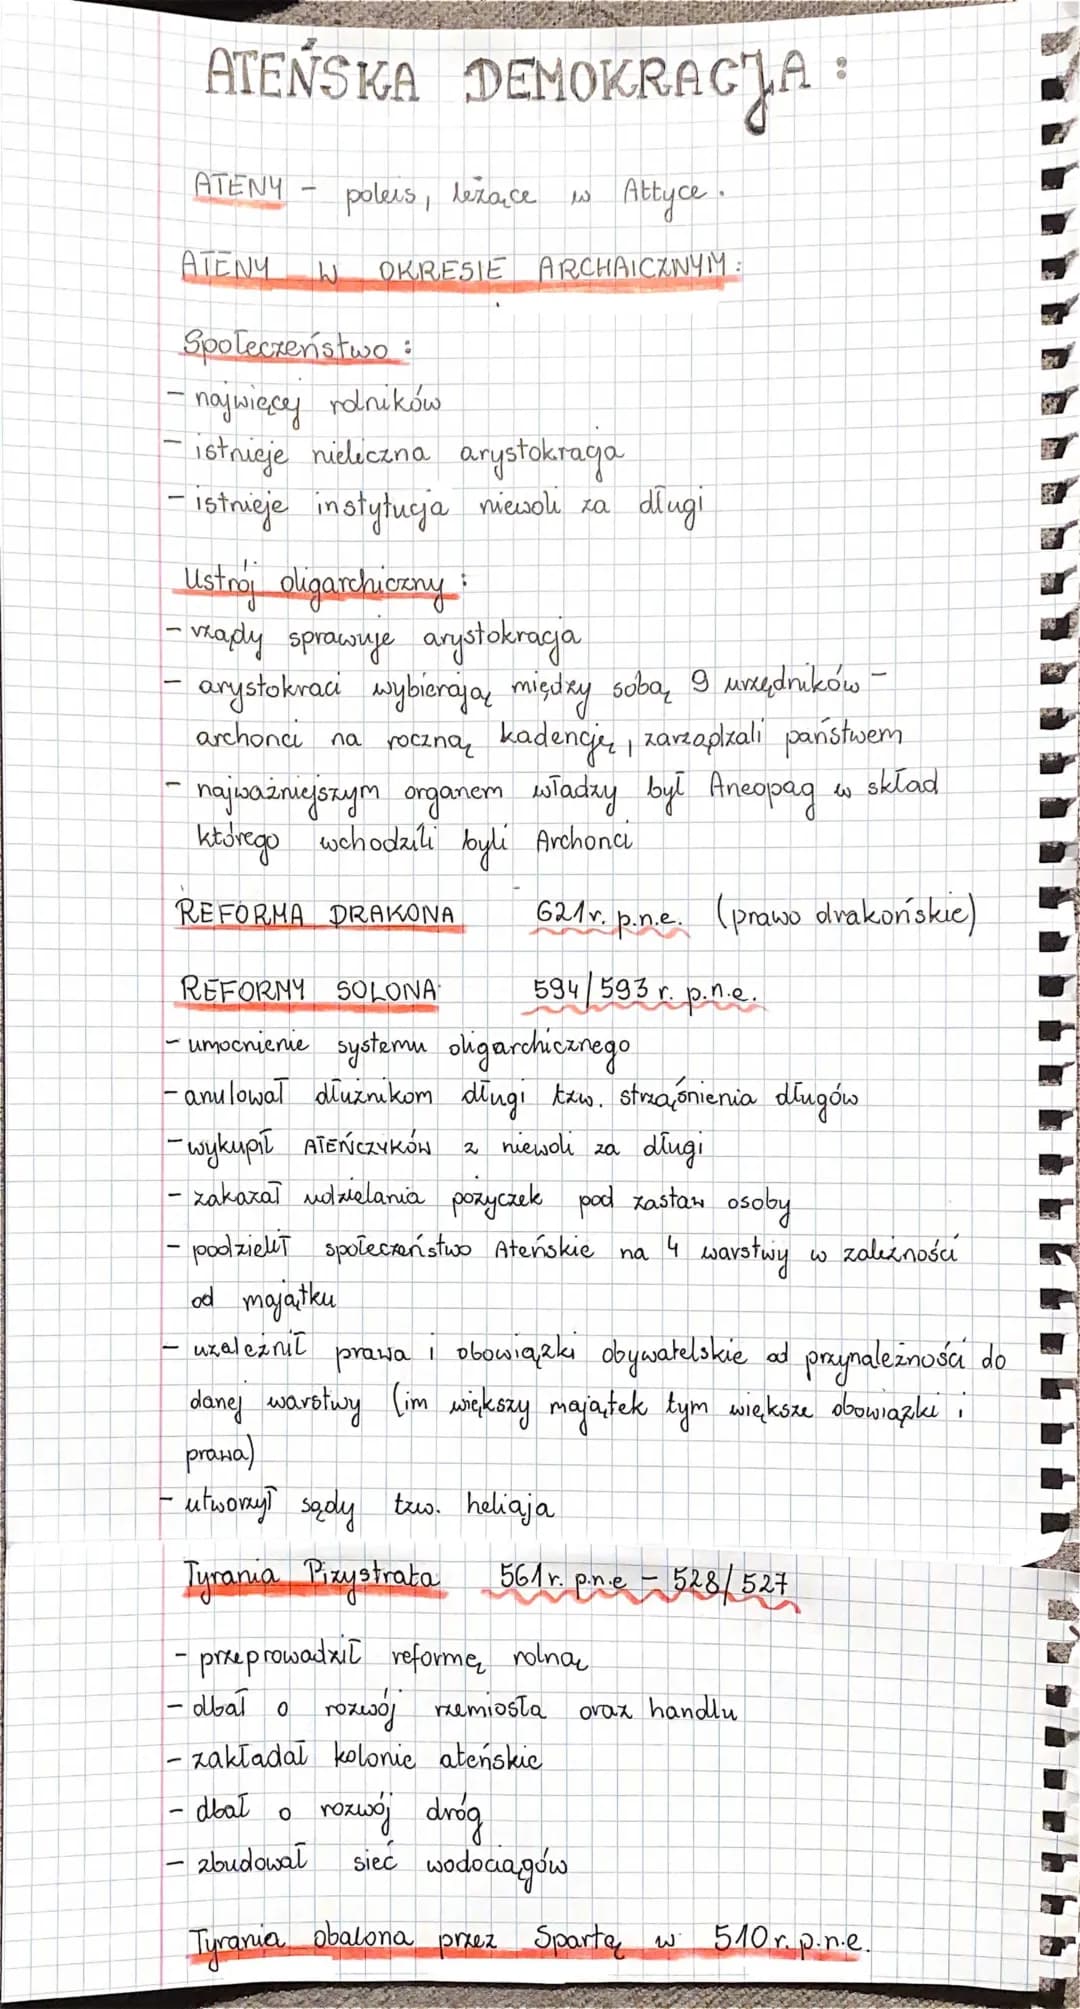 ATEŃSKA DEMOKRACJA:
ATENY - poleis, leżące w Attyce.
ATENY W OKRESIE ARCHAICZNYM:
Społeczeństwo:
- najwięcej rolników
- istnieje nieliczna arystokracja
- istnieje instytucja niewoli za długi
Ustrój oligarchiczny:
- rządy sprawuje arystokracja
- arystokraci wybierają między sobą 9 urzędników -
archonci na roczną kadencję, zarządzali państwem
- najważniejszym organem władzy był Aneopag w skład
którego wchodzili byli Archonci
REFORMA DRAKONA 621r. p.n.e. (prawo drakońskie)
REFORMY SOLONA 594/593 r. p.n.e.
- umocnienie systemu oligarchicznego
- anulował dłużnikom długi tzw. strząśnienia długów
- wykupił ATEŃCZYKÓW z niewoli za długi
- zakazał udzielania pożyczek pod zastaw osoby
- podzielił społeczeństwo Ateńskie na 4 warstwy w zależności
od majątku
- uzależnił prawa i obowiązki obywatelskie od przynależności do
danej warstwy (im większy majątek tym większe obowiązki i
prawa)
- utworzył sądy tzw. heliaja
Tyrania Pizystrata 561r. p.n.e - 528/527
- przeprowadził reformę rolną
- dbał o rozwój rzemiosła oraz handlu
- zakładał kolonie ateńskie
- dbał o rozwój dróg
- zbudował sieć wodociągów
Tyrania obalona przez Spartę w 510r. p.n.e.